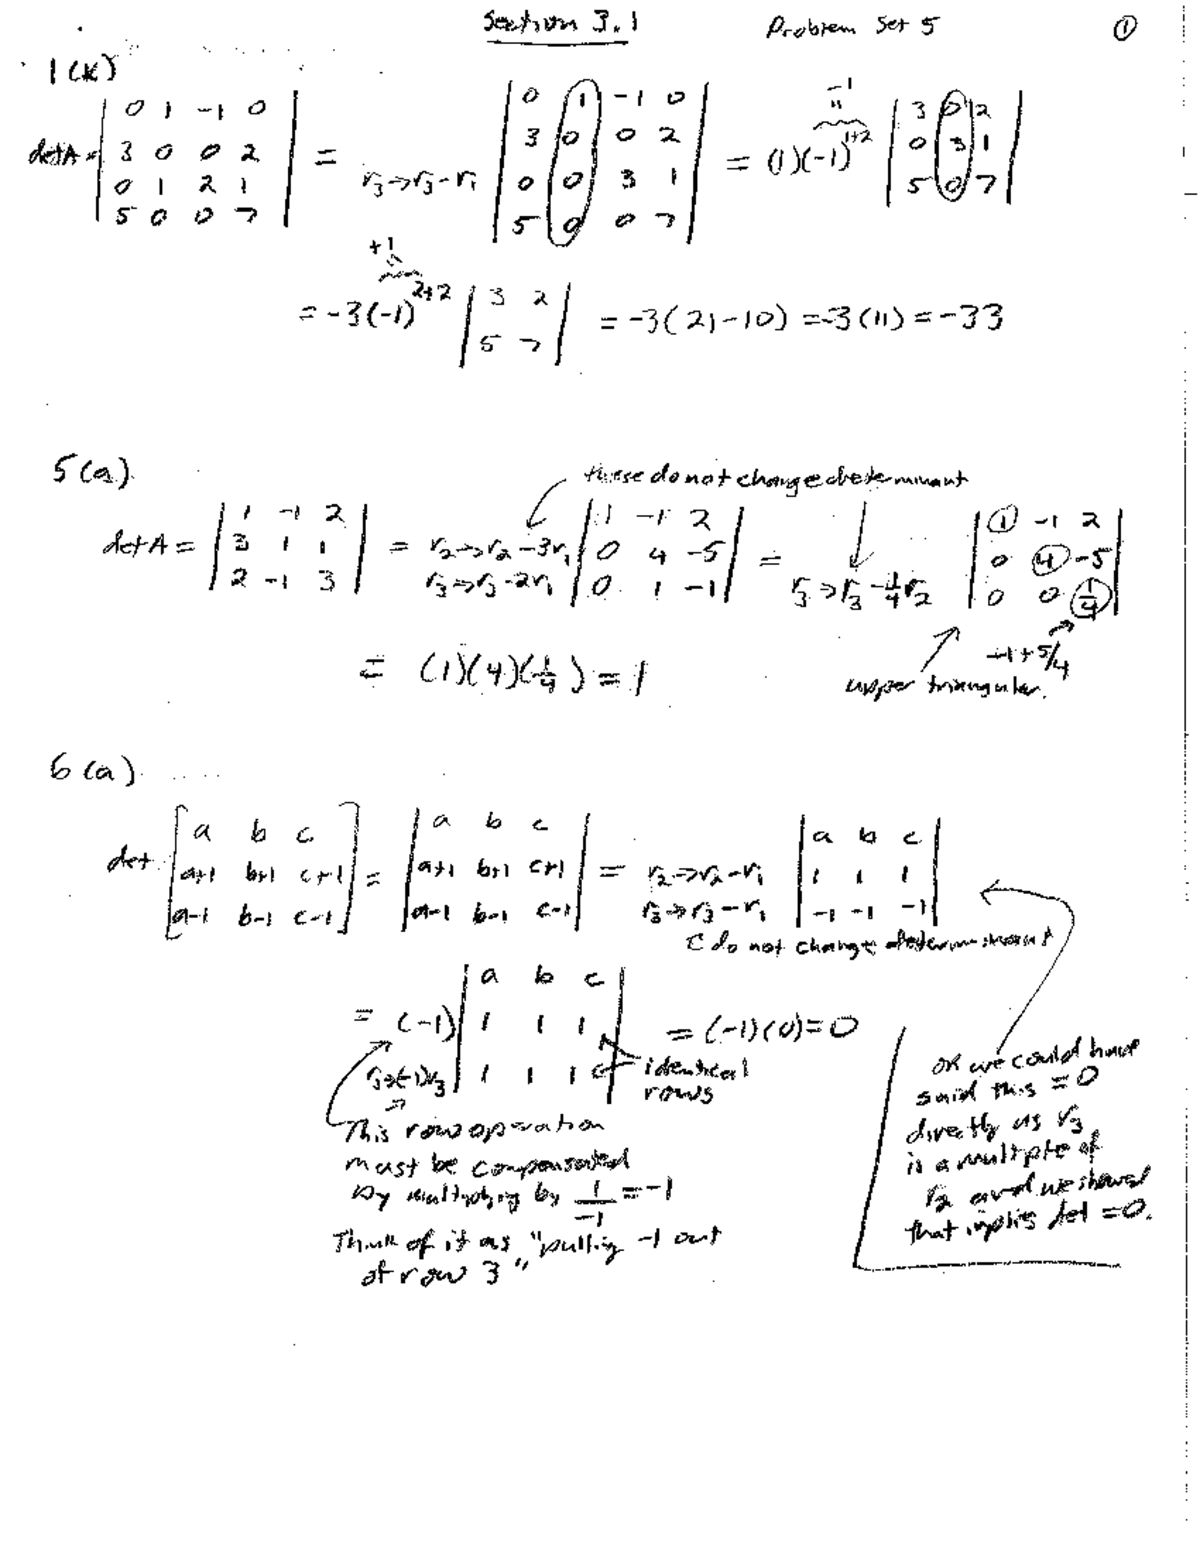 Section 3.1 Problem Set 5 ①
1(k)
det A = | 0 1 -1 0 | = | 0 1 -1 0 | = (1)(-1)^{1+2} | 3 0 2 |
| 3 0 0 2 | r₃→r₃-r₁ | 3 0 0 2 | | 0 3 1 |
| 0 1 2 1 | | 0 0 3 1 | | 5 0 7 |
| 5 0 0 7 | | 5 0 0 7 |
-1
"
+1
= -3(-1)^{2+2} | 3 2 | = -3(21-10) = -3(11) = -33
| 5 7 |
5(a)
these do not change determinant
det A = | 1 -1 2 | = r₂→r₂-3r₁ | 1 -1 2 | = | 1 -1 2 |
| 3 1 1 | r₃→r₃-2r₁ | 0 4 -5 | r₃→r₃-1/4r₂ | 0 4 -5 |
| 2 -1 3 | | 0 1 -1 | | 0 0 1/4 |
-1+5/4
= (1)(4)(1/4) = 1
upper triangular.
6(a)
det [ a b c ] = | a b c | = r₂→r₂-r₁ | a b c |
[ a+1 b+1 c+1 ] | a+1 b+1 c+1 | r₃→r₃-r₁ | 1 1 1 |
[ a-1 b-1 c-1 ] | a-1 b-1 c-1 | | -1 -1 -1 |
do not change determinant
= (-1) | a b c | = (-1)(0) = 0
| 1 1 1 |
r₃→(-1)r₃ | 1 1 1 |
identical
rows
This row operation
must be compensated
by multiplying by 1/-1 = -1
Think of it as "pulling -1 out
of row 3"
or we could have
said this = 0
directly as r₃
is a multiple of
r₂ and we showed
that implies det = 0.